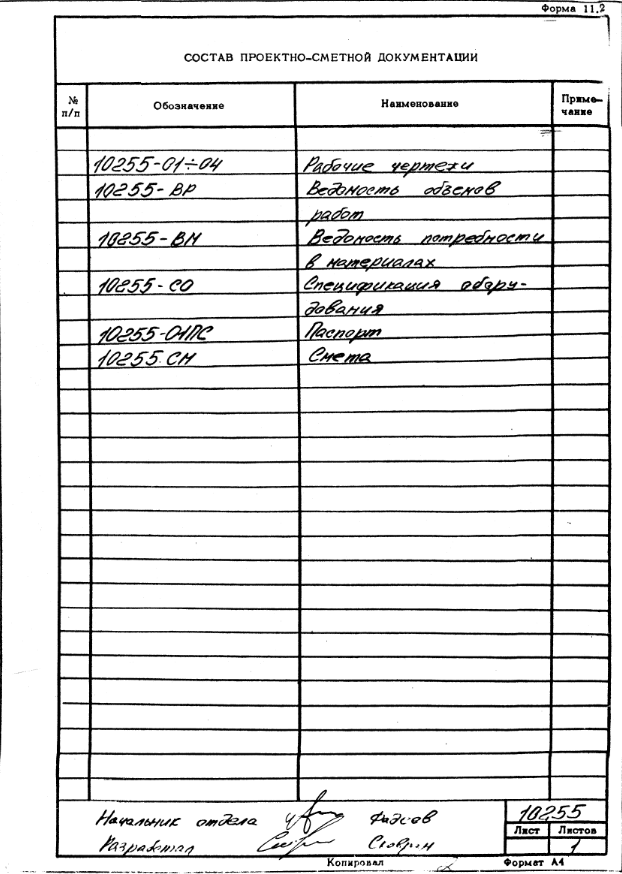 Форма 11.2
СОСТАВ ПРОЕКТНО-СМЕТНОЙ ДОКУМЕНТАЦИИ
№ п/п Обозначение Наименование Приме-чание
10255-01÷04 Рабочие чертежи
10255-ВР Ведомость объемов
работ
10255-ВМ Ведомость потребности
в материалах
10255-СО Спецификация обору-
дования
10255-01ПС Паспорт
10255 СМ Смета
Начальник отдела Фадеев
10255
Лист Листов
Разработал
1
Копировал Формат А4